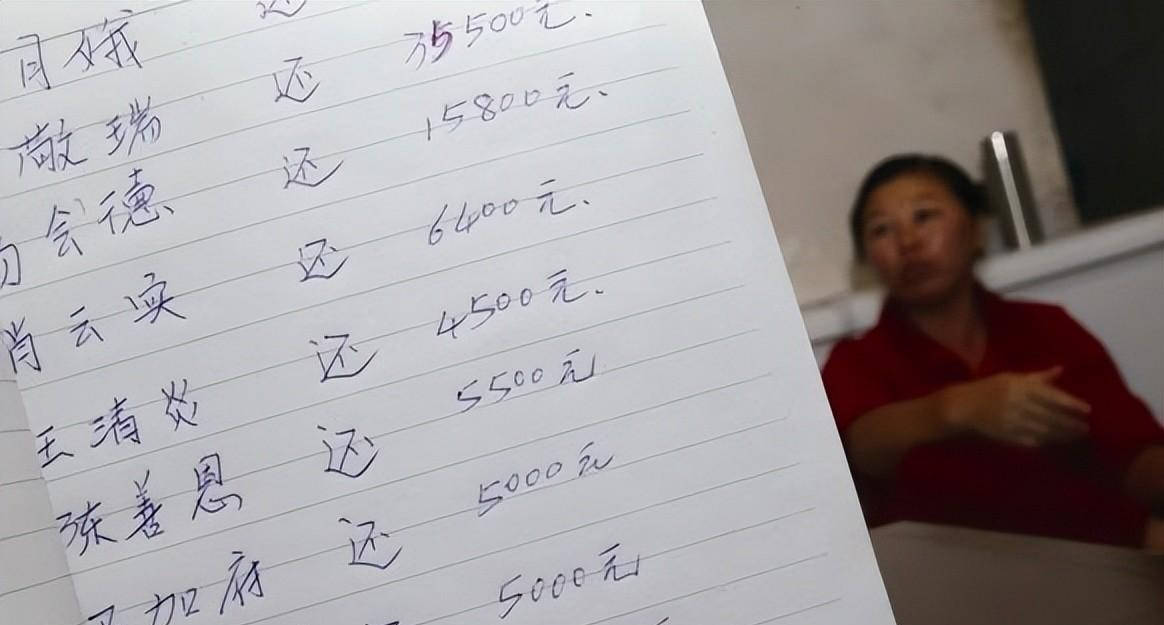 月娥 还
瑞 还 35500元.
会德 还 15800元.
肖云实 还 6400元.
王清炎 还 4500元.
张善恩 还 5500元
加府 还 5000元
5000元